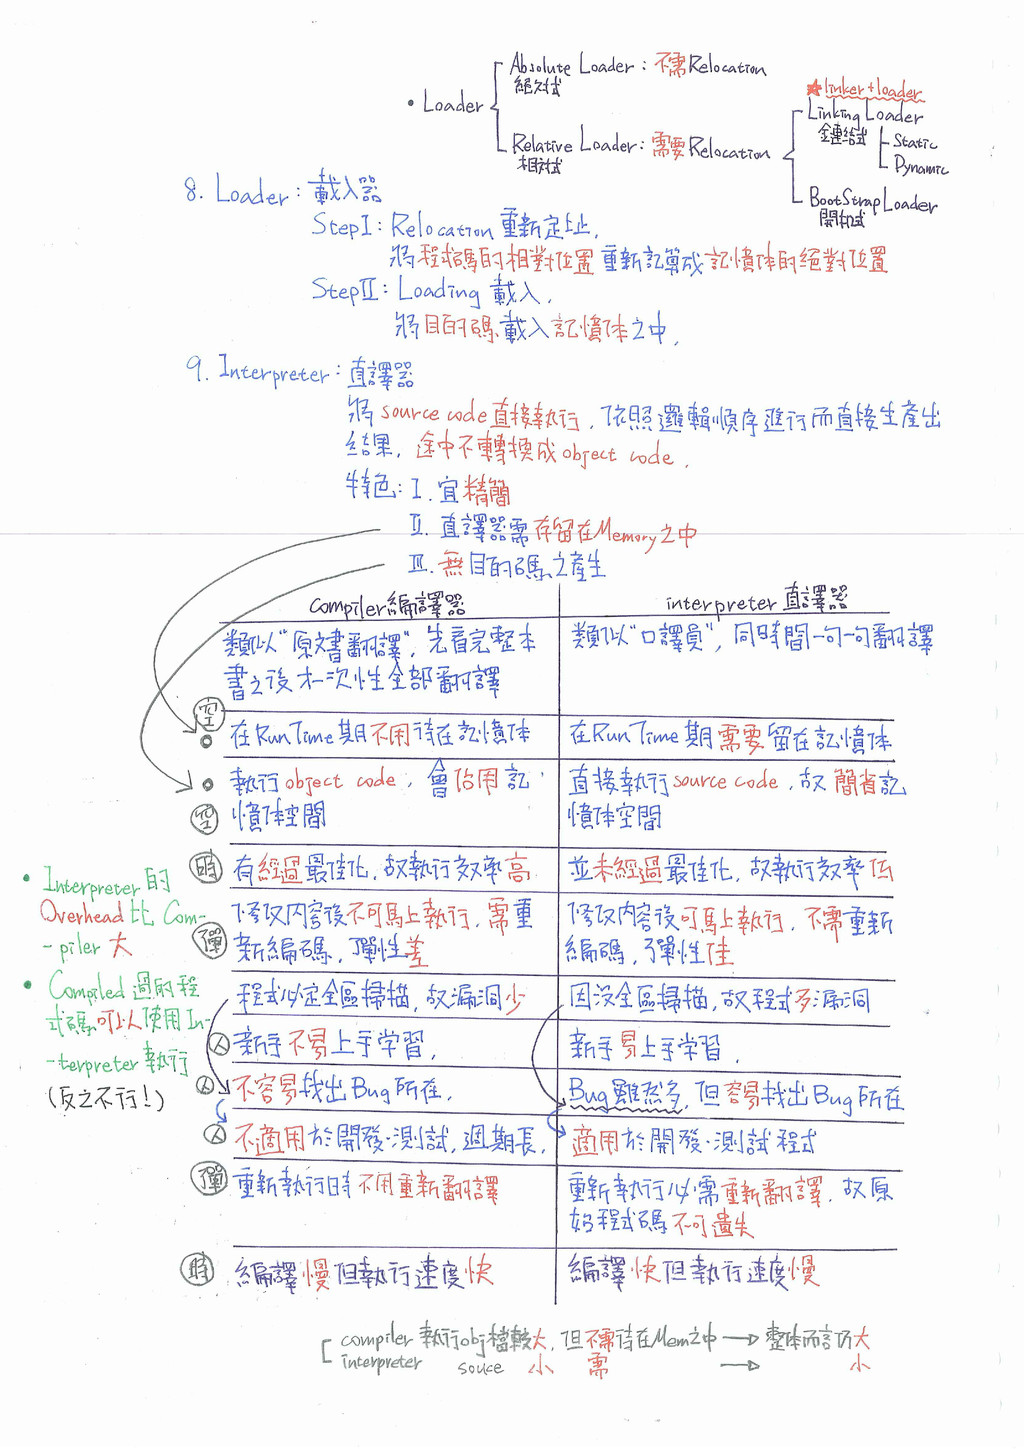 Absolute Loader：不需Relocation
絕對式
• Loader
★linker+loader
Linking Loader
鏈結式
Static
Dynamic
Relative Loader：需要Relocation
相對式
BootStrap Loader
開机式
8. Loader：載入器
StepI：Relocation 重新定址.
將程式碼的相對位置重新計算成記憶体的絕對位置
StepII：Loading 載入.
將目的碼載入記憶体之中.
9. Interpreter：直譯器
將source code直接執行，依照邏輯順序進行而直接生產出
結果，途中不轉換成object code.
特色：I. 宜精簡
II. 直譯器需存留在Memory之中
III. 無目的碼之產生
Compiler編譯器
interpreter直譯器
類似"原文書翻譯"，先看完整本
書之後才一次性全部翻譯
類似"口譯員"，同時間一句一句翻譯
空
在RunTime期不用待在記憶体
在RunTime期需要留在記憶体
執行object code，會佔用記
憶体空間
直接執行source code，故簡省記
憶体空間
空
時
有經過最佳化，故執行效率高
並未經過最佳化，故執行效率低
• Interpreter的
Overhead比Com-
-piler大
修改內容後不可馬上執行，需重
新編碼，彈性差
修改內容後可馬上執行，不需重新
編碼，彈性佳
彈
• Compiled過的程
式碼可以使用In-
-terpreter執行
(反之不行!)
程式必定全區掃描，故漏洞少
因沒全區掃描，故程式多漏洞
人
新手不易上手学習.
新手易上手学習.
人
不容易找出Bug所在.
Bug雖然多，但容易找出Bug所在
人
不適用於開發·測試，週期長.
適用於開發·測試程式
彈
重新執行時不用重新翻譯
重新執行必需重新翻譯，故原
始程式碼不可遺失
時
編譯慢但執行速度快
編譯快但執行速度慢
compiler 執行obj檔較大，但不需待在Mem之中 → 整体而言仍大
interpreter souce 小 需 → 小